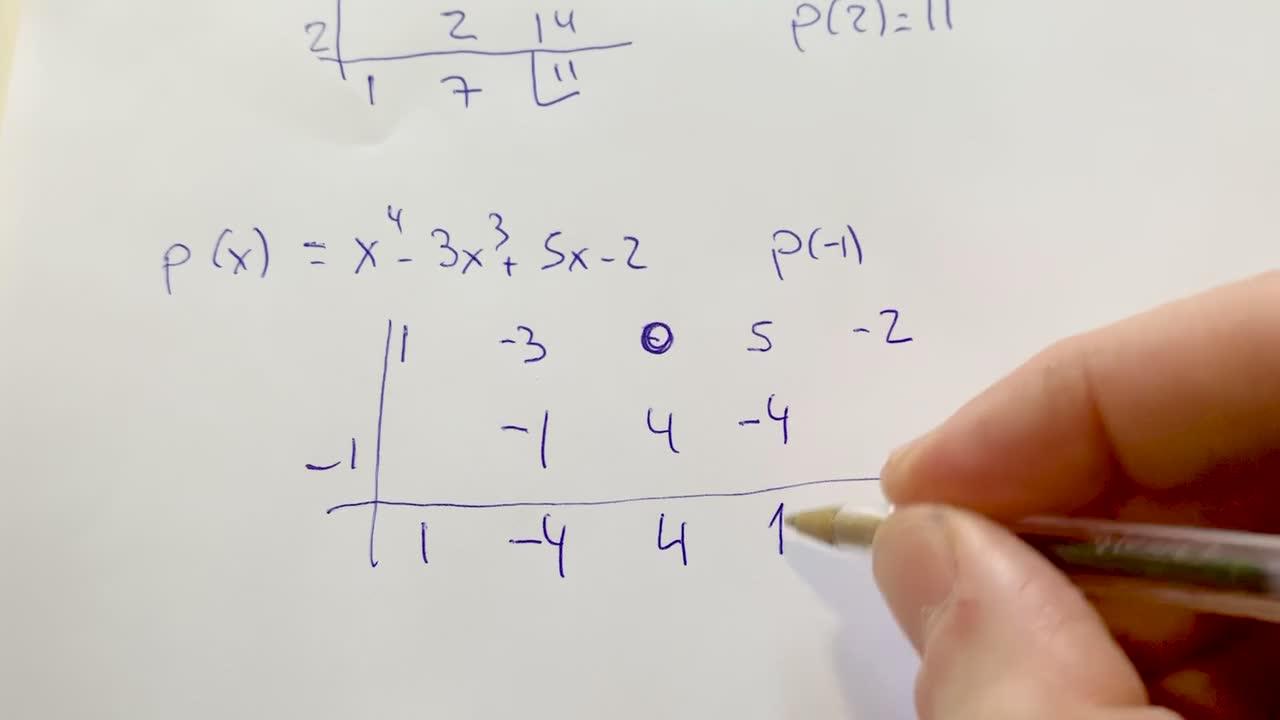 2 14 p(2)=11
2
1 7 11
p(x) = x⁴ - 3x³ + 5x - 2 p(-1)
1 -3 0 5 -2
-1 4 -4
-1
1 -4 4 1